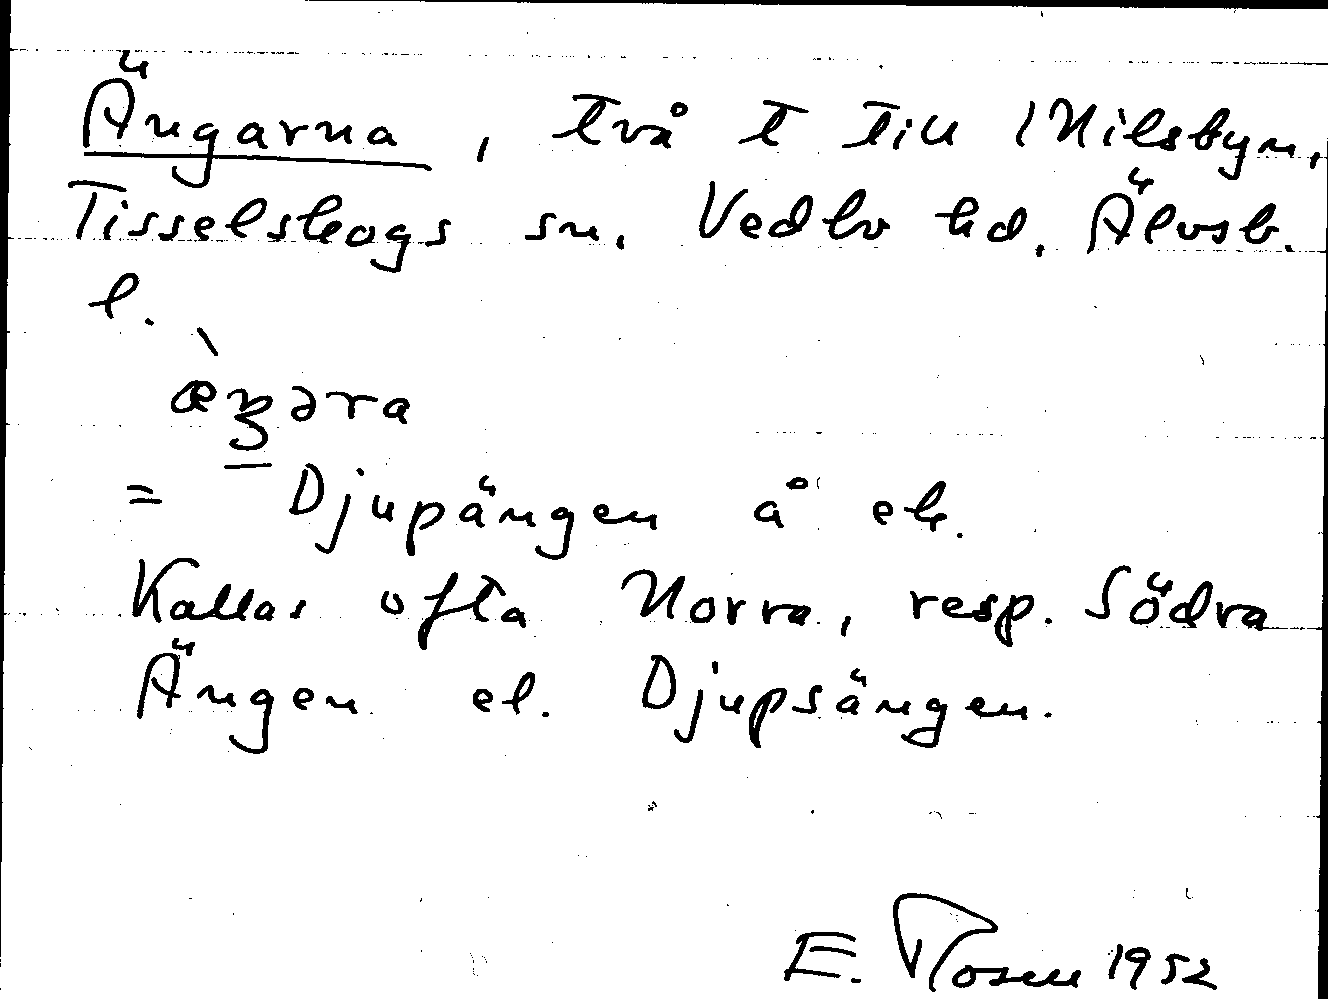 Ängarna, två t till 1 Nilsbyn,
Tisselskogs sn. Vedbo hd. Älvsb.
l.
æ̀ŋəra
= Djupängen å ek.
Kallas ofta Norra, resp. Södra
Ängen el. Djupsängen.
E. Rosell 1952